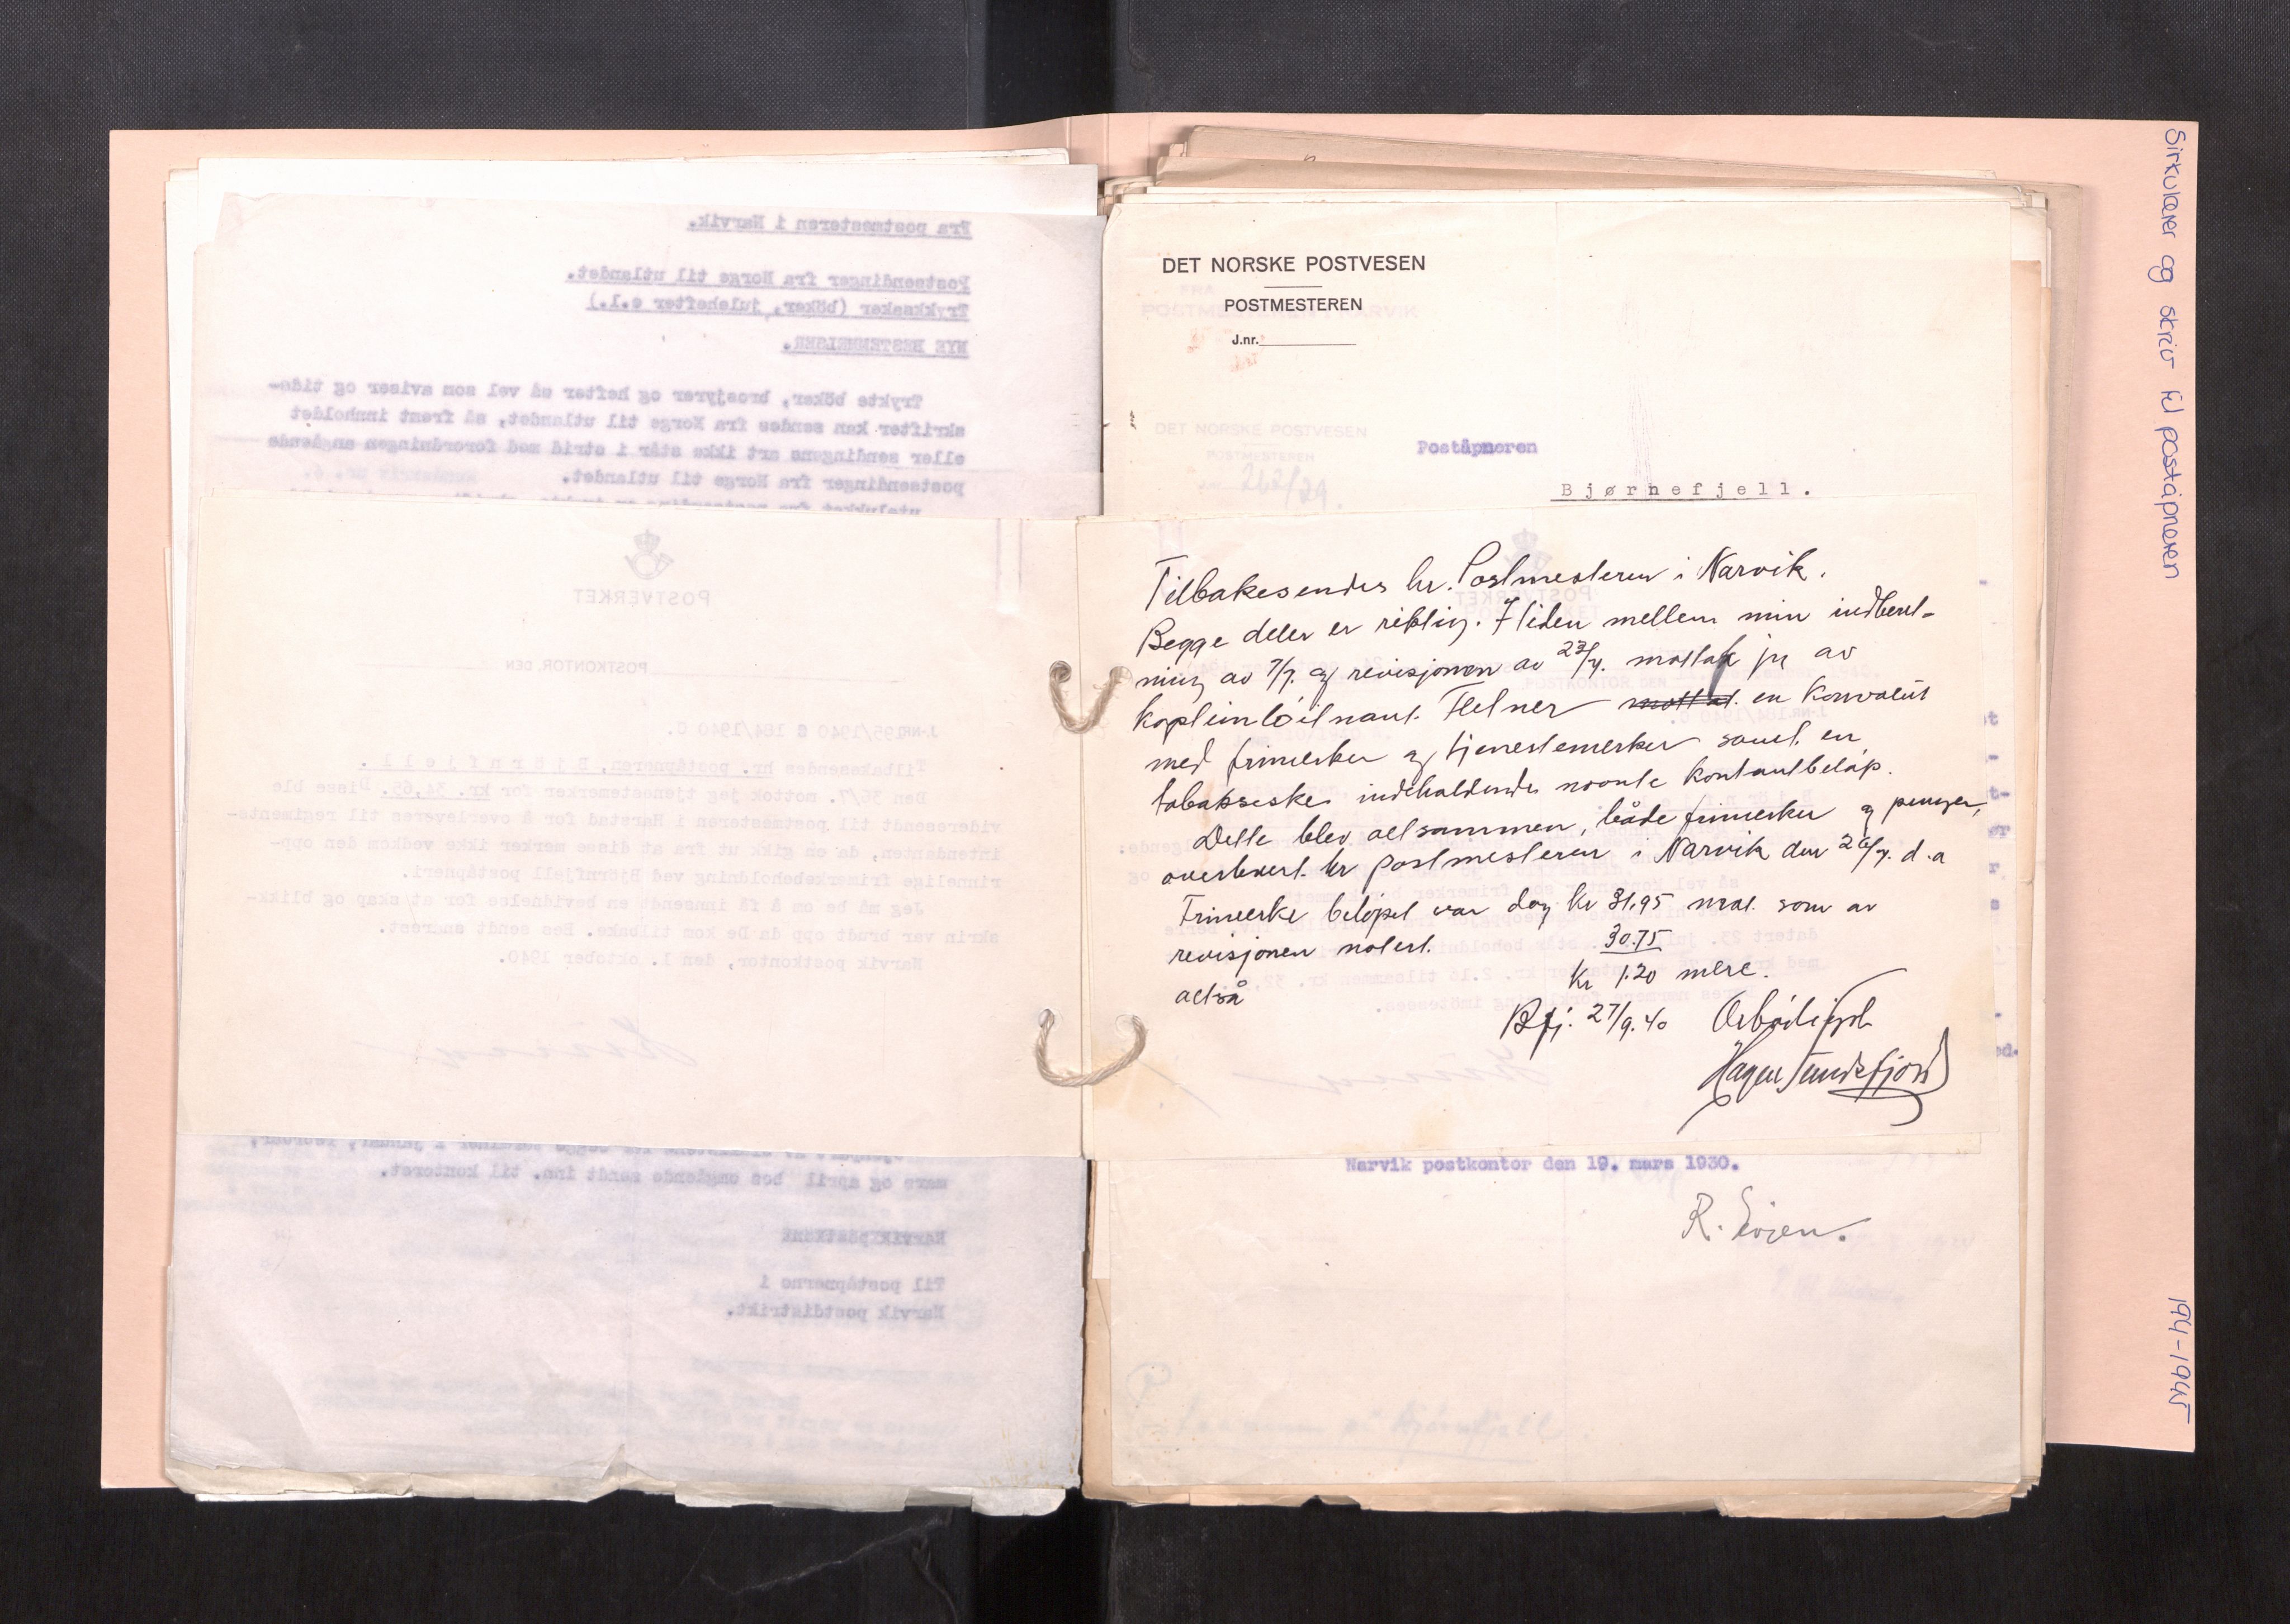 Fra postmesteren i Narvik.
Postsendinger fra Norge til utlandet.
Trykksaker (böker, julehefter e.l.)
NYE BESTEMMELSER.
Trykte böker, brosjyrer og hefter så vel som aviser og tids-
skrifter kan sendes fra Norge til utlandet, så fremt innholdet
eller sendingens art ikke står i strid med forordningen angående
postsendinger fra Norge til utlandet.
POSTVERKET
POSTKONTOR, DEN
J.NR. 195/1940 C 184/1940 C.
Tilbakesendes hr. poståpneren, Björnfjell.
Den 36/7. mottok jeg tjenestemerker for kr. 34,65. Disse ble
videresendt til postmesteren i Harstad for å overleveres til regiments-
intendanten, da en gikk ut fra at disse merker ikke vedkom den opp-
rinnelige frimerkebeholdning ved Björnfjell poståpneri.
Jeg må be om å få innsendt en bevidnelse for at skap og blikk-
skrin var brudt opp da De kom tilbake. Bes sendt snarest.
Narvik postkontor, den 1. oktober 1940.
mars og april bes omgående sendt inn. til kontoret.
Narvik postkont
Til poståpnerne i
Narvik postdistrikt.
DET NORSKE POSTVESEN
POSTMESTEREN
J.nr.
Poståpneren
Bjørnefjell.
Tilbakesendes hr. Postmesteren i Narvik.
Begge deler er riktig. I tiden mellem min indberet-
ning av 7/7. og revisjonen av 23/7. mottok jeg av
kapteinløitnant. en konvolut
med frimerker og tjenestemerker samt en
tobakseske indeholdende noonte kontantbeløp.
Dette blev altsammen, både frimerker og penger,
overlevert hr postmesteren i Narvik den 26/7. d.a
Frimerke beløpet var dog kr 31.95 mot som av
revisjonen notert. 30.75
altså kr 1.20 mere.
Bfj. 27/9.40 Ærbødigst
Narvik postkontor den 19. mars 1930.
Sirkulærer og skriv til poståpneren
194-1945